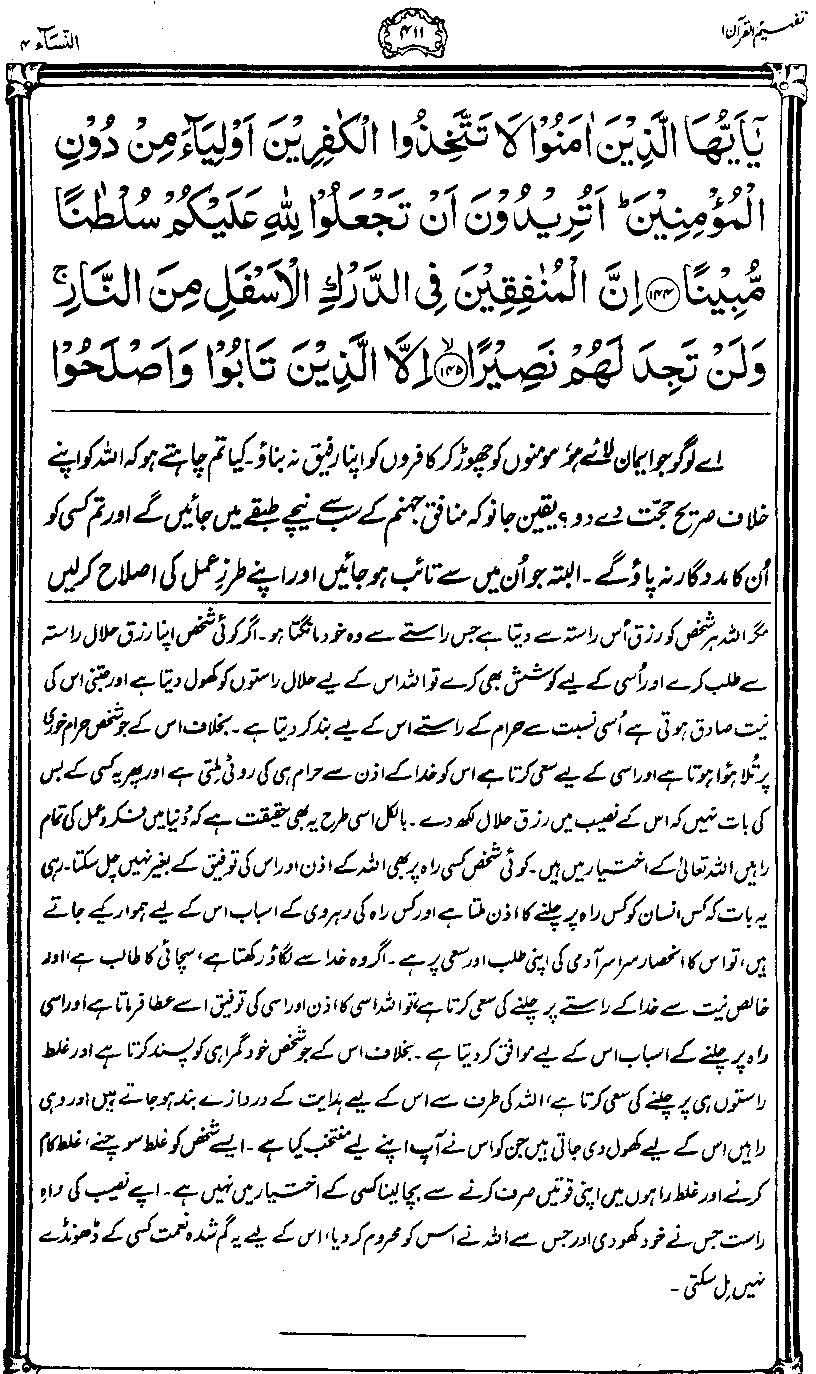 تفہیم القرآن ۱
۴۱۱
النسآء ۴
یٰۤاَیُّهَا الَّذِیْنَ اٰمَنُوْا لَا تَتَّخِذُوا الْكٰفِرِیْنَ اَوْلِیَآءَ مِنْ دُوْنِ
الْمُؤْمِنِیْنَ ؕ اَتُرِیْدُوْنَ اَنْ تَجْعَلُوْا لِلّٰهِ عَلَیْكُمْ سُلْطٰنًا
مُّبِیْنًا ﴿۱۴۴﴾ اِنَّ الْمُنٰفِقِیْنَ فِی الدَّرْكِ الْاَسْفَلِ مِنَ النَّارِ ۚ
وَلَنْ تَجِدَ لَهُمْ نَصِیْرًا ﴿۱۴۵﴾ۙ اِلَّا الَّذِیْنَ تَابُوْا وَاَصْلَحُوْا
اے لوگو جو ایمان لائے ہو، مومنوں کو چھوڑ کر کافروں کو اپنا رفیق نہ بناؤ۔ کیا تم چاہتے ہو کہ اللہ کو اپنے
خلاف صریح حجت دے دو؟ یقین جانو کہ منافق جہنم کے سب سے نیچے طبقے میں جائیں گے اور تم کسی کو
اُن کا مددگار نہ پاؤ گے۔ البتہ جو اُن میں سے تائب ہو جائیں اور اپنے طرزِ عمل کی اصلاح کر لیں
مگر اللہ ہر شخص کو رزق اُس راستہ سے دیتا ہے جس راستے سے وہ خود مانگتا ہو۔ اگر کوئی شخص اپنا رزق حلال راستہ
سے طلب کرے اور اُسی کے لیے کوشش بھی کرے تو اللہ اس کے لیے حلال راستوں کو کھول دیتا ہے اور جتنی اس کی
نیت صادق ہوتی ہے اُسی نسبت سے حرام کے راستے اس کے لیے بند کر دیتا ہے۔ بخلاف اس کے جو شخص حرام خوری
پر تُلا ہؤا ہوتا ہے اور اسی کے لیے سعی کرتا ہے اس کو خدا کے اذن سے حرام ہی کی روٹی ملتی ہے اور پھر یہ کسی کے بس
کی بات نہیں کہ اس کے نصیب میں رزق حلال لکھ دے۔ بالکل اسی طرح یہ بھی حقیقت ہے کہ دُنیا میں فکر و عمل کی تمام
راہیں اللہ تعالیٰ کے اختیار میں ہیں۔ کوئی شخص کسی راہ پر بھی اللہ کے اذن اور اس کی توفیق کے بغیر نہیں چل سکتا۔ رہی
یہ بات کہ کس انسان کو کس راہ پر چلنے کا اذن ملتا ہے اور کس راہ کی رہروی کے اسباب اس کے لیے ہموار کیے جاتے
ہیں، تو اس کا انحصار سراسر آدمی کی اپنی طلب اور سعی پر ہے۔ اگر وہ خدا سے لگاؤ رکھتا ہے، سچائی کا طالب ہے، اور
خالص نیت سے خدا کے راستے پر چلنے کی سعی کرتا ہے، تو اللہ اسی کا اذن اور اسی کی توفیق اسے عطا فرماتا ہے اور اسی
راہ پر چلنے کے اسباب اس کے لیے موافق کر دیتا ہے۔ بخلاف اس کے جو شخص خود گمراہی کو پسند کرتا ہے اور غلط
راستوں ہی پر چلنے کی سعی کرتا ہے، اللہ کی طرف سے اس کے لیے ہدایت کے دروازے بند ہو جاتے ہیں اور وہی
راہیں اس کے لیے کھول دی جاتی ہیں جن کو اس نے آپ اپنے لیے منتخب کیا ہے۔ ایسے شخص کو غلط سوچنے، غلط کام
کرنے اور غلط راہوں میں اپنی قوتیں صرف کرنے سے بچا لینا کسی کے اختیار میں نہیں ہے۔ اپنے نصیب کی راہِ
راست جس نے خود کھو دی اور جس سے اللہ نے اس کو محروم کر دیا، اس کے لیے یہ گم شدہ نعمت کسی کے ڈھونڈے
نہیں مل سکتی۔